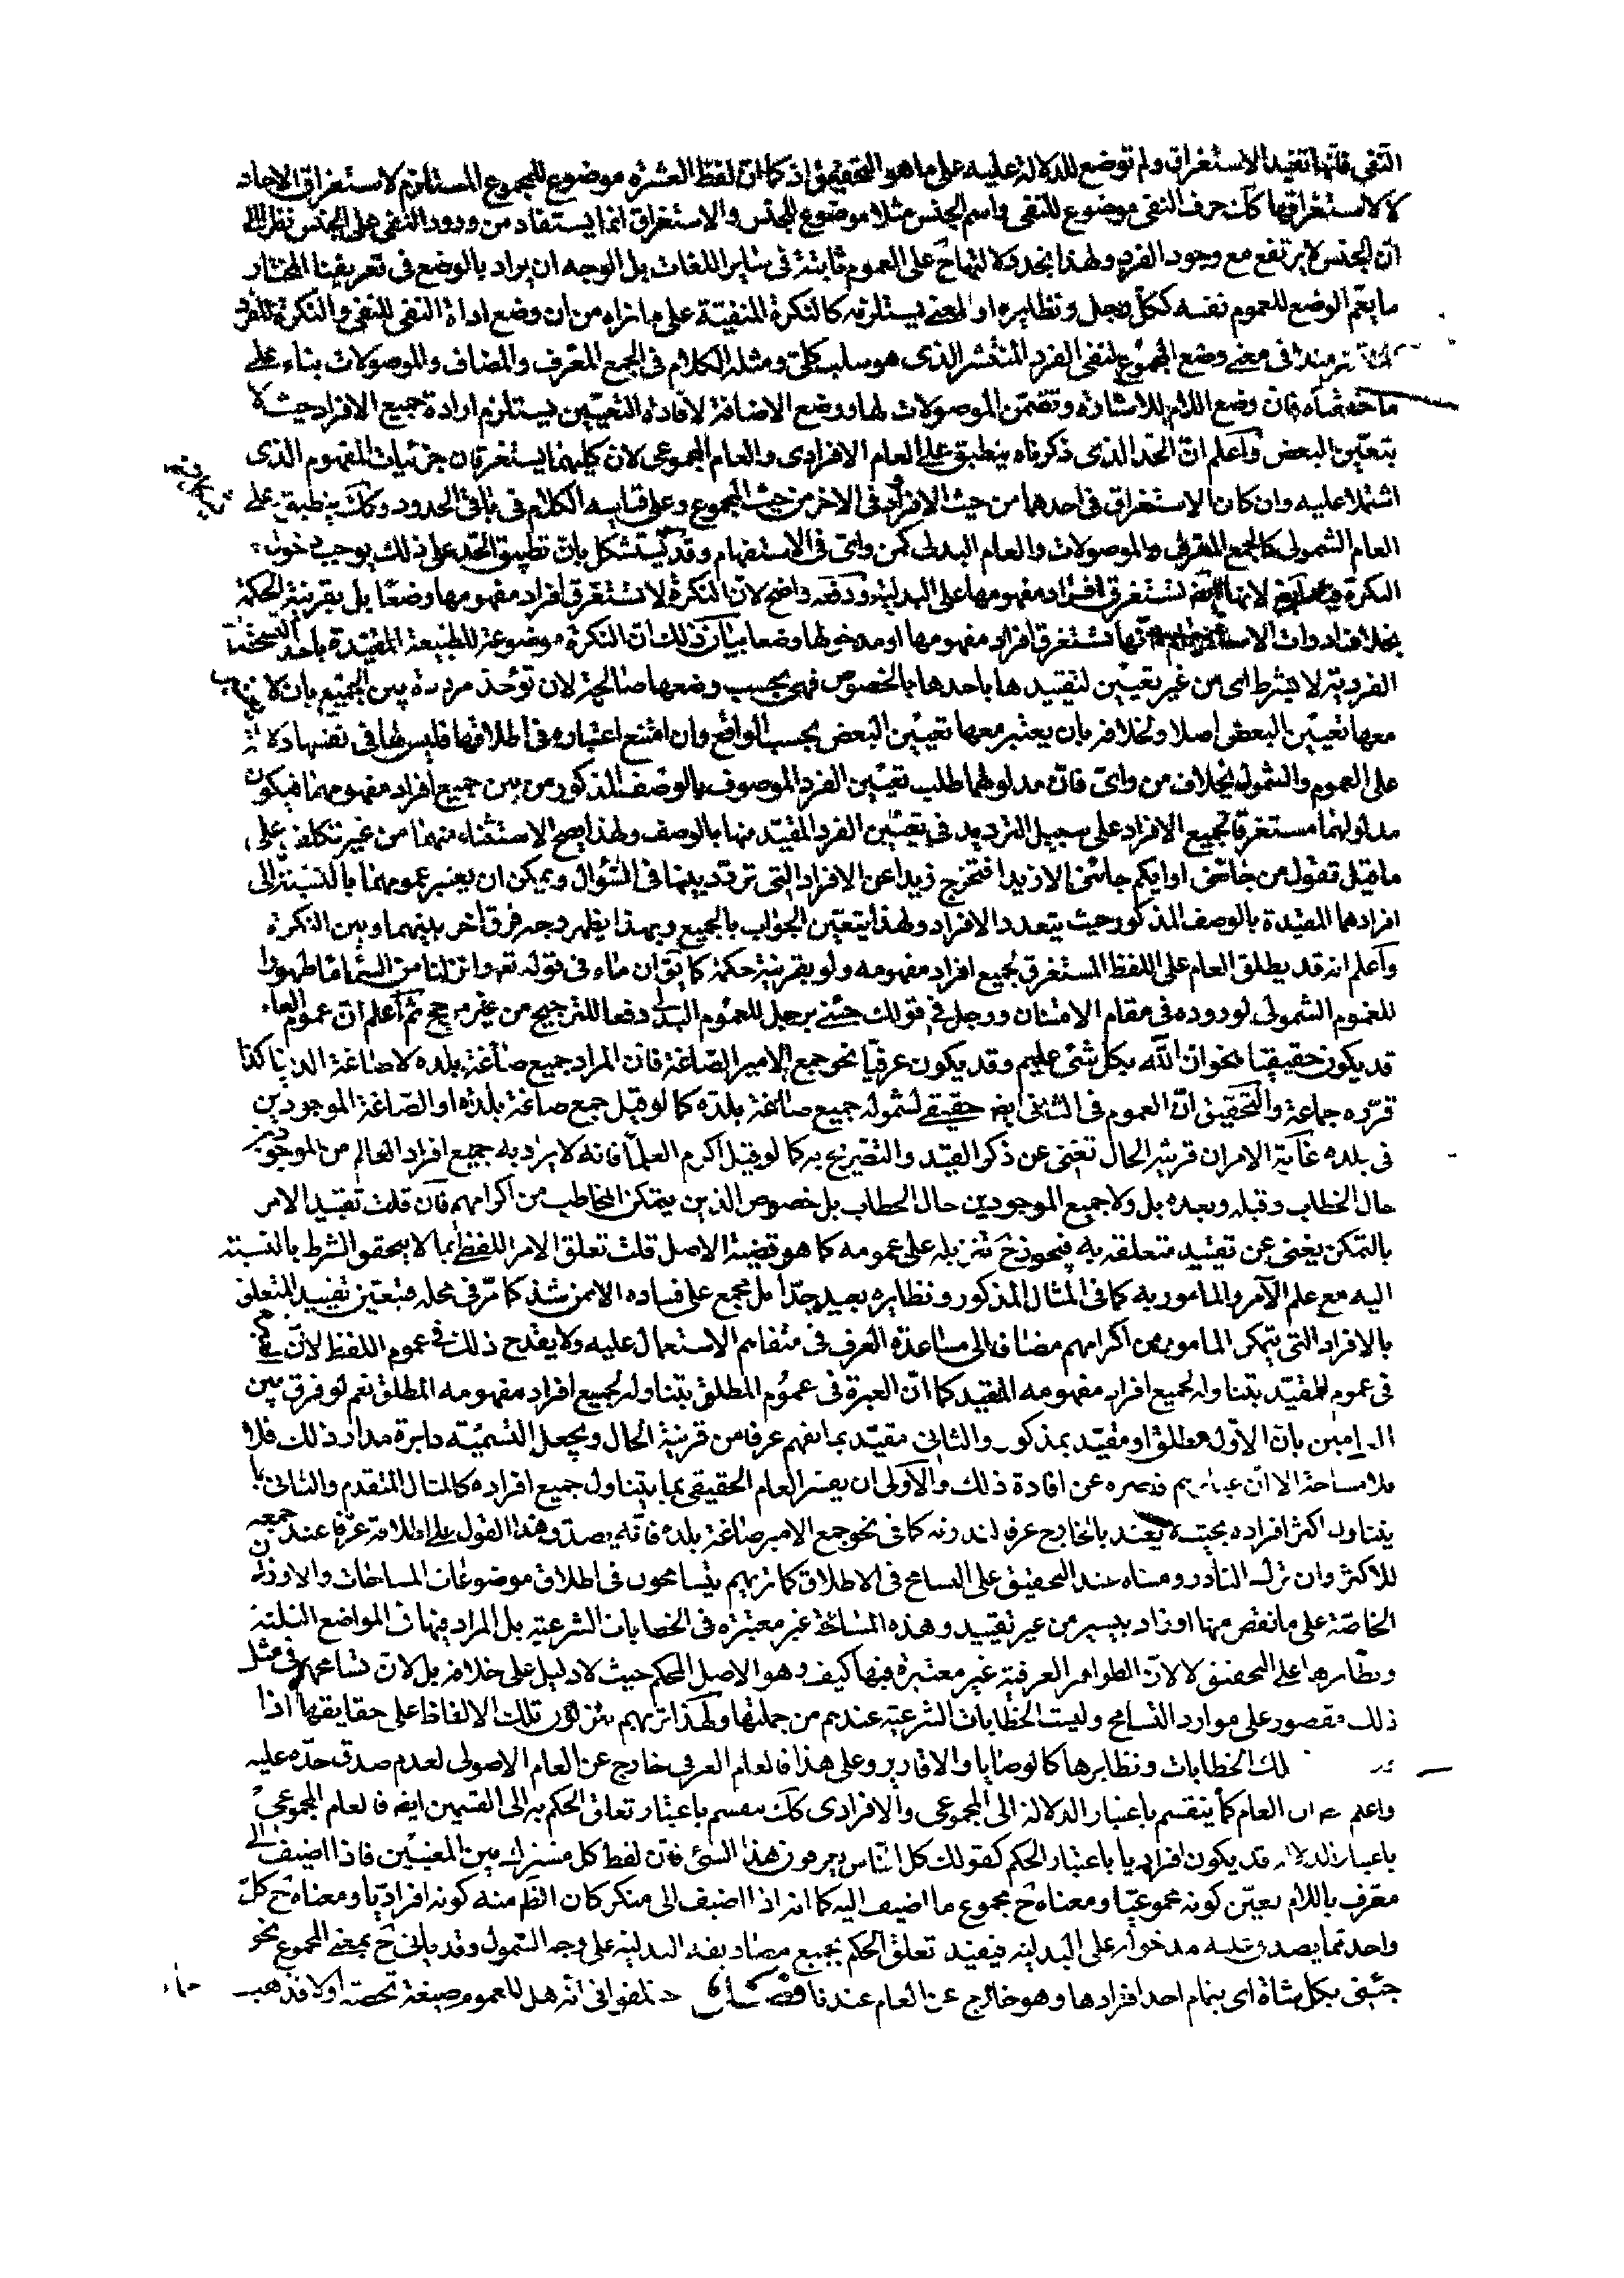 النفى فانها تفيد الاستغراق ولم توضع للدلالة عليه على ما هو التحقيق اذ كما ان لفظ العشرة موضوع للمجموع المستلزم لاستغراق الاحاد
لا لاستغراقها كك حرف النفى موضوع للنفى واسم الجنس مثلا موضوع للجنس والاستغراق انما يستفاد من ورود النفى على الجنس نظرا الى
ان الجنس لا يرتفع مع وجود الفرد ولهذا نجد دلالتها ح على العموم ثابتة فى ساير اللغات بل الوجه ان يراد بالوضع فى تعريفنا المختار
ما يعم الوضع للعموم نفسه ككل رجل ونظايره او لمعنى يستلزمه كالنكرة المنفية على ما نراه من ان وضع اداة النفى للنفى والنكرة للفرد
المنتشر فى معنى وضع المجموع لنفى الفرد المنتشر الذى هو سلب كلى ومثله الكلام فى الجمع المعرف والمضاف والموصولات بناء على
ما حققناه فان وضع اللام للاشارة وتضمن الموصولات لها ووضع الاضافة لافادة التعيين يستلزم ارادة جميع الافراد حيث لا
يتعين البعض واعلم ان الحد الذى ذكرناه ينطبق على العام الافرادى والعام المجموعى لان كليهما يستغرقان جزئيات المفهوم الذى
اشتملا عليه وان كان الاستغراق فى احدهما من حيث الافراد وفى الاخر من حيث المجموع وعلى قياسه الكلام فى باقى الحدود وكك ينطبق على
العام الشمولى كالجمع المعرف والموصولات والعام البدلى كمن واى فى الاستفهام وقد يستشكل بان تطبيق الحد على ذلك يوجب دخول
النكرة لانها ايض تستغرق افراد مفهومها على البدلية ودفعه واضح لان النكرة لا تستغرق افراد مفهومها وضعا بل بقرينة الحكمة
بخلاف ادوات الاستفهام فانها تستغرق افراد مفهومها او مدخولها وضعا بيان ذلك ان النكرة موضوعة للطبيعة المقيدة باحد التشخصات
الفردية لا بشرط اى من غير تعيين لتقييدها باحدها بالخصوص فهى بحسب وضعها صالحة لان تؤخذ مرددة بين الجميع بان لا يعتبر
معها تعيين البعض اصلا وبخلافه بان يعتبر معها تعيين البعض بحسب الواقع وان امتنع اعتباره فى اطلاقها فليس لها فى نفسها دلالة
على العموم والشمول بخلاف من واى فان مدلولهما طلب تعيين الفرد الموصوف بالوصف المذكور من بين جميع افراد مفهومهما فيكون
مدلولهما مستغرقا لجميع الافراد على سبيل الترديد فى تعيين الفرد المقيد منها بالوصف ولهذا يصح الاستثناء منهما من غير تكلف على
ما قيل تقول من جائنى او ايكم جائنى الا زيدا فتخرج زيدا عن الافراد التى تردد بينها فى السؤال ويمكن ان يعتبر عمومهما بالنسبة الى
افرادهما المقيدة بالوصف المذكور حيث يتعدد الافراد ولهذا يتعين الجواب بالجميع وبهذا يظهر وجه فرق اخر بينهما وبين النكرة
واعلم انه قد يطلق العام على اللفظ المستغرق لجميع افراد مفهومه ولو بقرينة حكمة كما يق ان ماء فى قوله تعه وانزلنا من السماء ماء طهورا
للعموم الشمولى لوروده فى مقام الامتنان ورجل فى قولك جئنى برجل للعموم البدلى دفعا للترجيح من غير مرجح ثم اعلم ان عموم العام
قد يكون حقيقيا نحو ان الله بكل شئ عليم وقد يكون عرفيا نحو جمع الامير الصاغة فان المراد جميع صاغة بلده لا صاغة الدنيا كذا
قرره جماعة والتحقيق ان العموم فى الثانى ايض حقيقى لشموله جميع صاغة بلده كما لو قيل جمع صاغة بلده او الصاغة الموجودين
فى بلده غاية الامر ان قرينة الحال تغنى عن ذكر القيد والتصريح به كما لو قيل اكرم العلماء فانه لا يراد به جميع افراد العالم من الموجودين
حال الخطاب وقبله وبعده بل ولا جميع الموجودين حال الخطاب بل خصوص الذين يتمكن المخاطب من اكرامهم فان قلت تقييد الامر
بالتمكن يغنى عن تقييد متعلقه به فيجوز ح تنزيله على عمومه كما هو قضية الاصل قلت تعلق الامر اللفظ بما لا يتحقق الشرط بالنسبة
اليه مع علم الآمر والمامور به كما فى المثال المذكور ونظايره بعيد جدا بل مجمع على فساده الا من شذ كما مر فى محله فتعين تقييد المتعلق
بالافراد التى يتمكن المامور من اكرامهم مضافا الى مساعدة العرف فى متفاهم الاستعمال عليه ولا يقدح ذلك فى عموم اللفظ لان
فى عموم المقيد بتناوله لجميع افراد مفهومه المقيد كما ان العبرة فى عموم المطلق بتناوله لجميع افراد مفهومه المطلق نعم لو فرق بين
العامين بان الاول مطلق او مقيد بمذكور والثانى مقيد بما يفهم عرفا من قرينة الحال ويجعل التسمية دايرة مدار ذلك فلا
مشاحة الا ان عبايرهم قاصرة عن افادة ذلك والاولى ان يفسر العام الحقيقى بما يتناول جميع افراده كالمثال المتقدم والثانى بما
يتناول اكثر افراده بحيث لا يعتد بالخارج عرفا لندرته كما فى نحو جمع الامير صاغة بلده فانه يصدق هذا القول على اطلاقه عرفا عند جمعه
للاكثر وان ترك النادر ومبناه عند التحقيق على التسامح فى الاطلاق كما تريهم يتسامحون فى اطلاق موضوعات المساحات والاوزان
الخاصة على ما نقص منها او زاد بيسير من غير تقييد وهذه المسامحة غير معتبرة فى الخطابات الشرعية بل المراد بها فى المواضع الثلثة
ونظايرها على التحقيق لا لان الظواهر العرفية غير معتبرة فيها كيف وهو الاصل المحكم حيث لا دليل على خلافه بل لان تسامحهم فى مثل
ذلك مقصور على موارد التسامح وليست الخطابات الشرعية عندهم من جملتها ولهذا تريهم ينزلون تلك الالفاظ على حقايقها اذا
تلك الخطابات ونظايرها كالوصايا والاقارير وعلى هذا فالعام العرفى خارج عن العام الاصولى لعدم صدق حده عليه
واعلم ان العام كما ينقسم باعتبار الدلالة الى المجموعى والافرادى كك ينقسم باعتبار تعلق الحكم به الى القسمين ايض فالعام المجموعى
باعتبار الدلالة قد يكون افراديا باعتبار الحكم كقولك كل الناس يعرفون هذا الشئ فان لفظ كل مشترك بين المعنيين فاذا اضيف الى
معرف باللام تعين كونه مجموعيا ومعناه ح مجموع ما اضيف اليه كما انه اذا اضيف الى منكر كان الظ منه كونه افراديا ومعناه ح كل
واحد مما يصدق عليه مدخوله على البدلية فيفيد تعلق الحكم بجميع مصاديقه البدلية على وجه الشمول وقد ياتى ح بمعنى المجموع نحو
جئنى بكل شاة اى بتمام احد افرادها وهو خارج عن العام عندنا فصل اختلفوا فى انه هل للعموم صيغة تخصه اولا فذهب